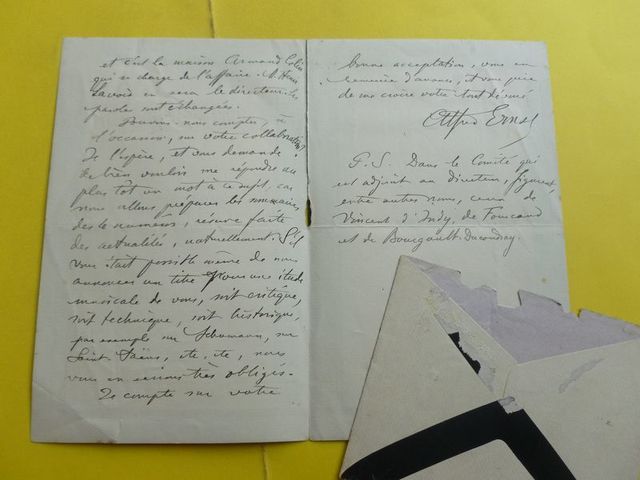 et c'est la maison Armand Colin
qui se charge de l'affaire. M. Henri
Lavoix en sera le directeur. Les
paroles sont échangées.
Pouvons-nous compter, à
l'occasion, sur votre collaboration?
Je l'espère, et vous demande
de bien vouloir me répondre au
plus tôt un mot à ce sujet, car
nous allons préparer les sommaires
des 1ers numéros, réserve faite
des actualités, naturellement. S'il
vous était possible même de nous
annoncer un titre pour une étude
musicale de vous, soit critique,
soit technique, soit historique,
par exemple sur Schumann, sur
Saint-Saëns, etc. etc, nous
vous en serions très obligés.
Je compte sur votre
bonne acceptation, vous en
remercie d'avance, et vous prie
de me croire votre tout dévoué
Alfred Ernst
P. S. Dans le Comité qui
est adjoint au directeur, figurent,
entre autres noms, ceux de
Vincent d'Indy, de Fourcaud
et de Bourgault-Ducoudray.